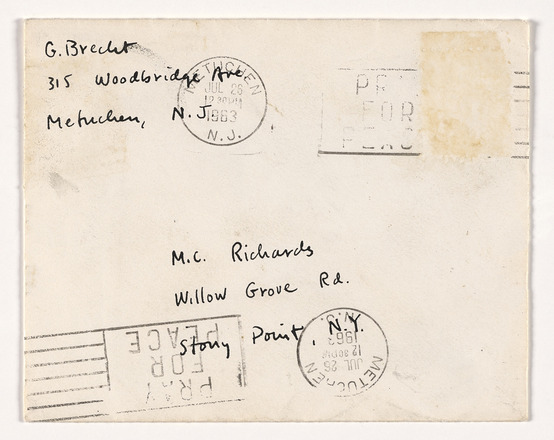 G. Brecht
315 Woodbridge Ave
Metuchen, N.J.
METUCHEN
JUL 26
12 30 PM
1963
N.J.
PR
FOR
PEAC
M.C. Richards
Willow Grove Rd.
Stony Point, N.Y.
PRAY
FOR
PEACE
METUCHEN
JUL 26
12 30 PM
1963
N.J.